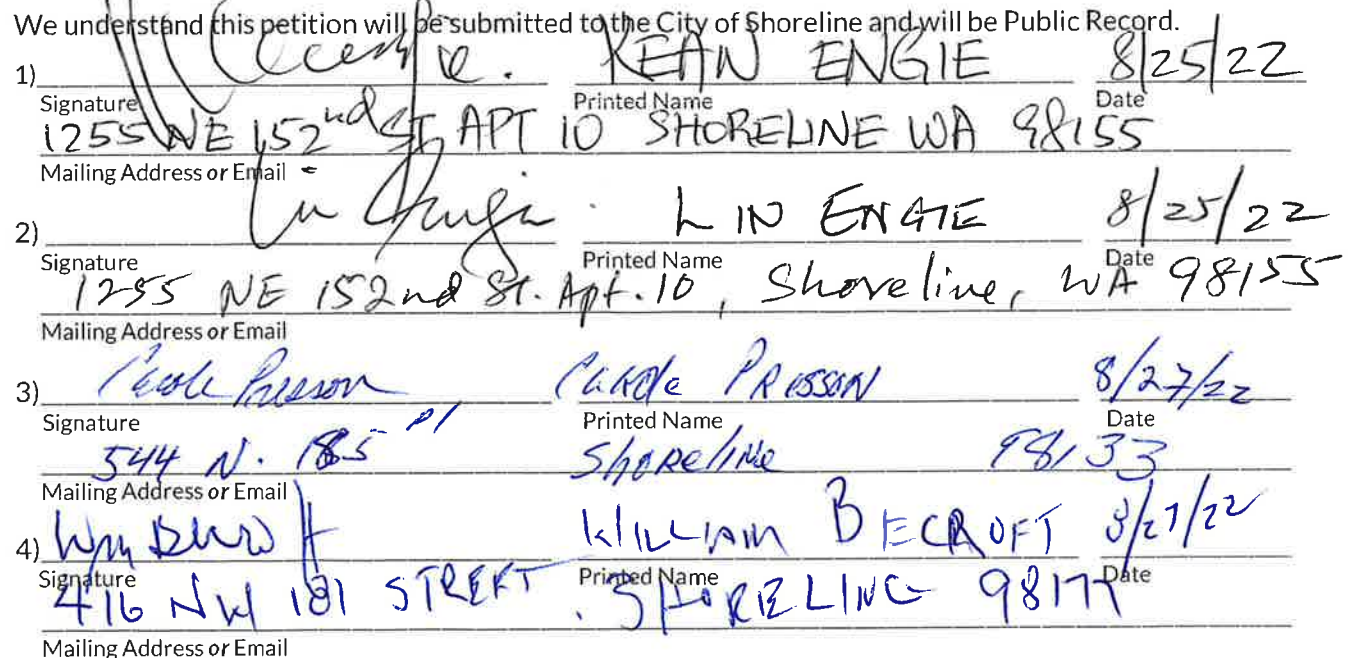 We understand this petition will be submitted to the City of Shoreline and will be Public Record.
1) KEAN ENGIE 8/25/22
Signature Printed Name Date
1255 NE 152nd ST APT 10 SHORELINE WA 98155
Mailing Address or Email
2) LIN ENGIE 8/25/22
Signature Printed Name Date
1255 NE 152nd St. Apt. 10, Shoreline, WA 98155
Mailing Address or Email
3) Carole Presson Carole PRESSON 8/27/22
Signature Printed Name Date
544 N. 185 Pl Shoreline 98133
Mailing Address or Email
4) WILLIAM BECROFT 8/27/22
Signature Printed Name Date
416 NW 181 STREET. SHORELINE 98177
Mailing Address or Email